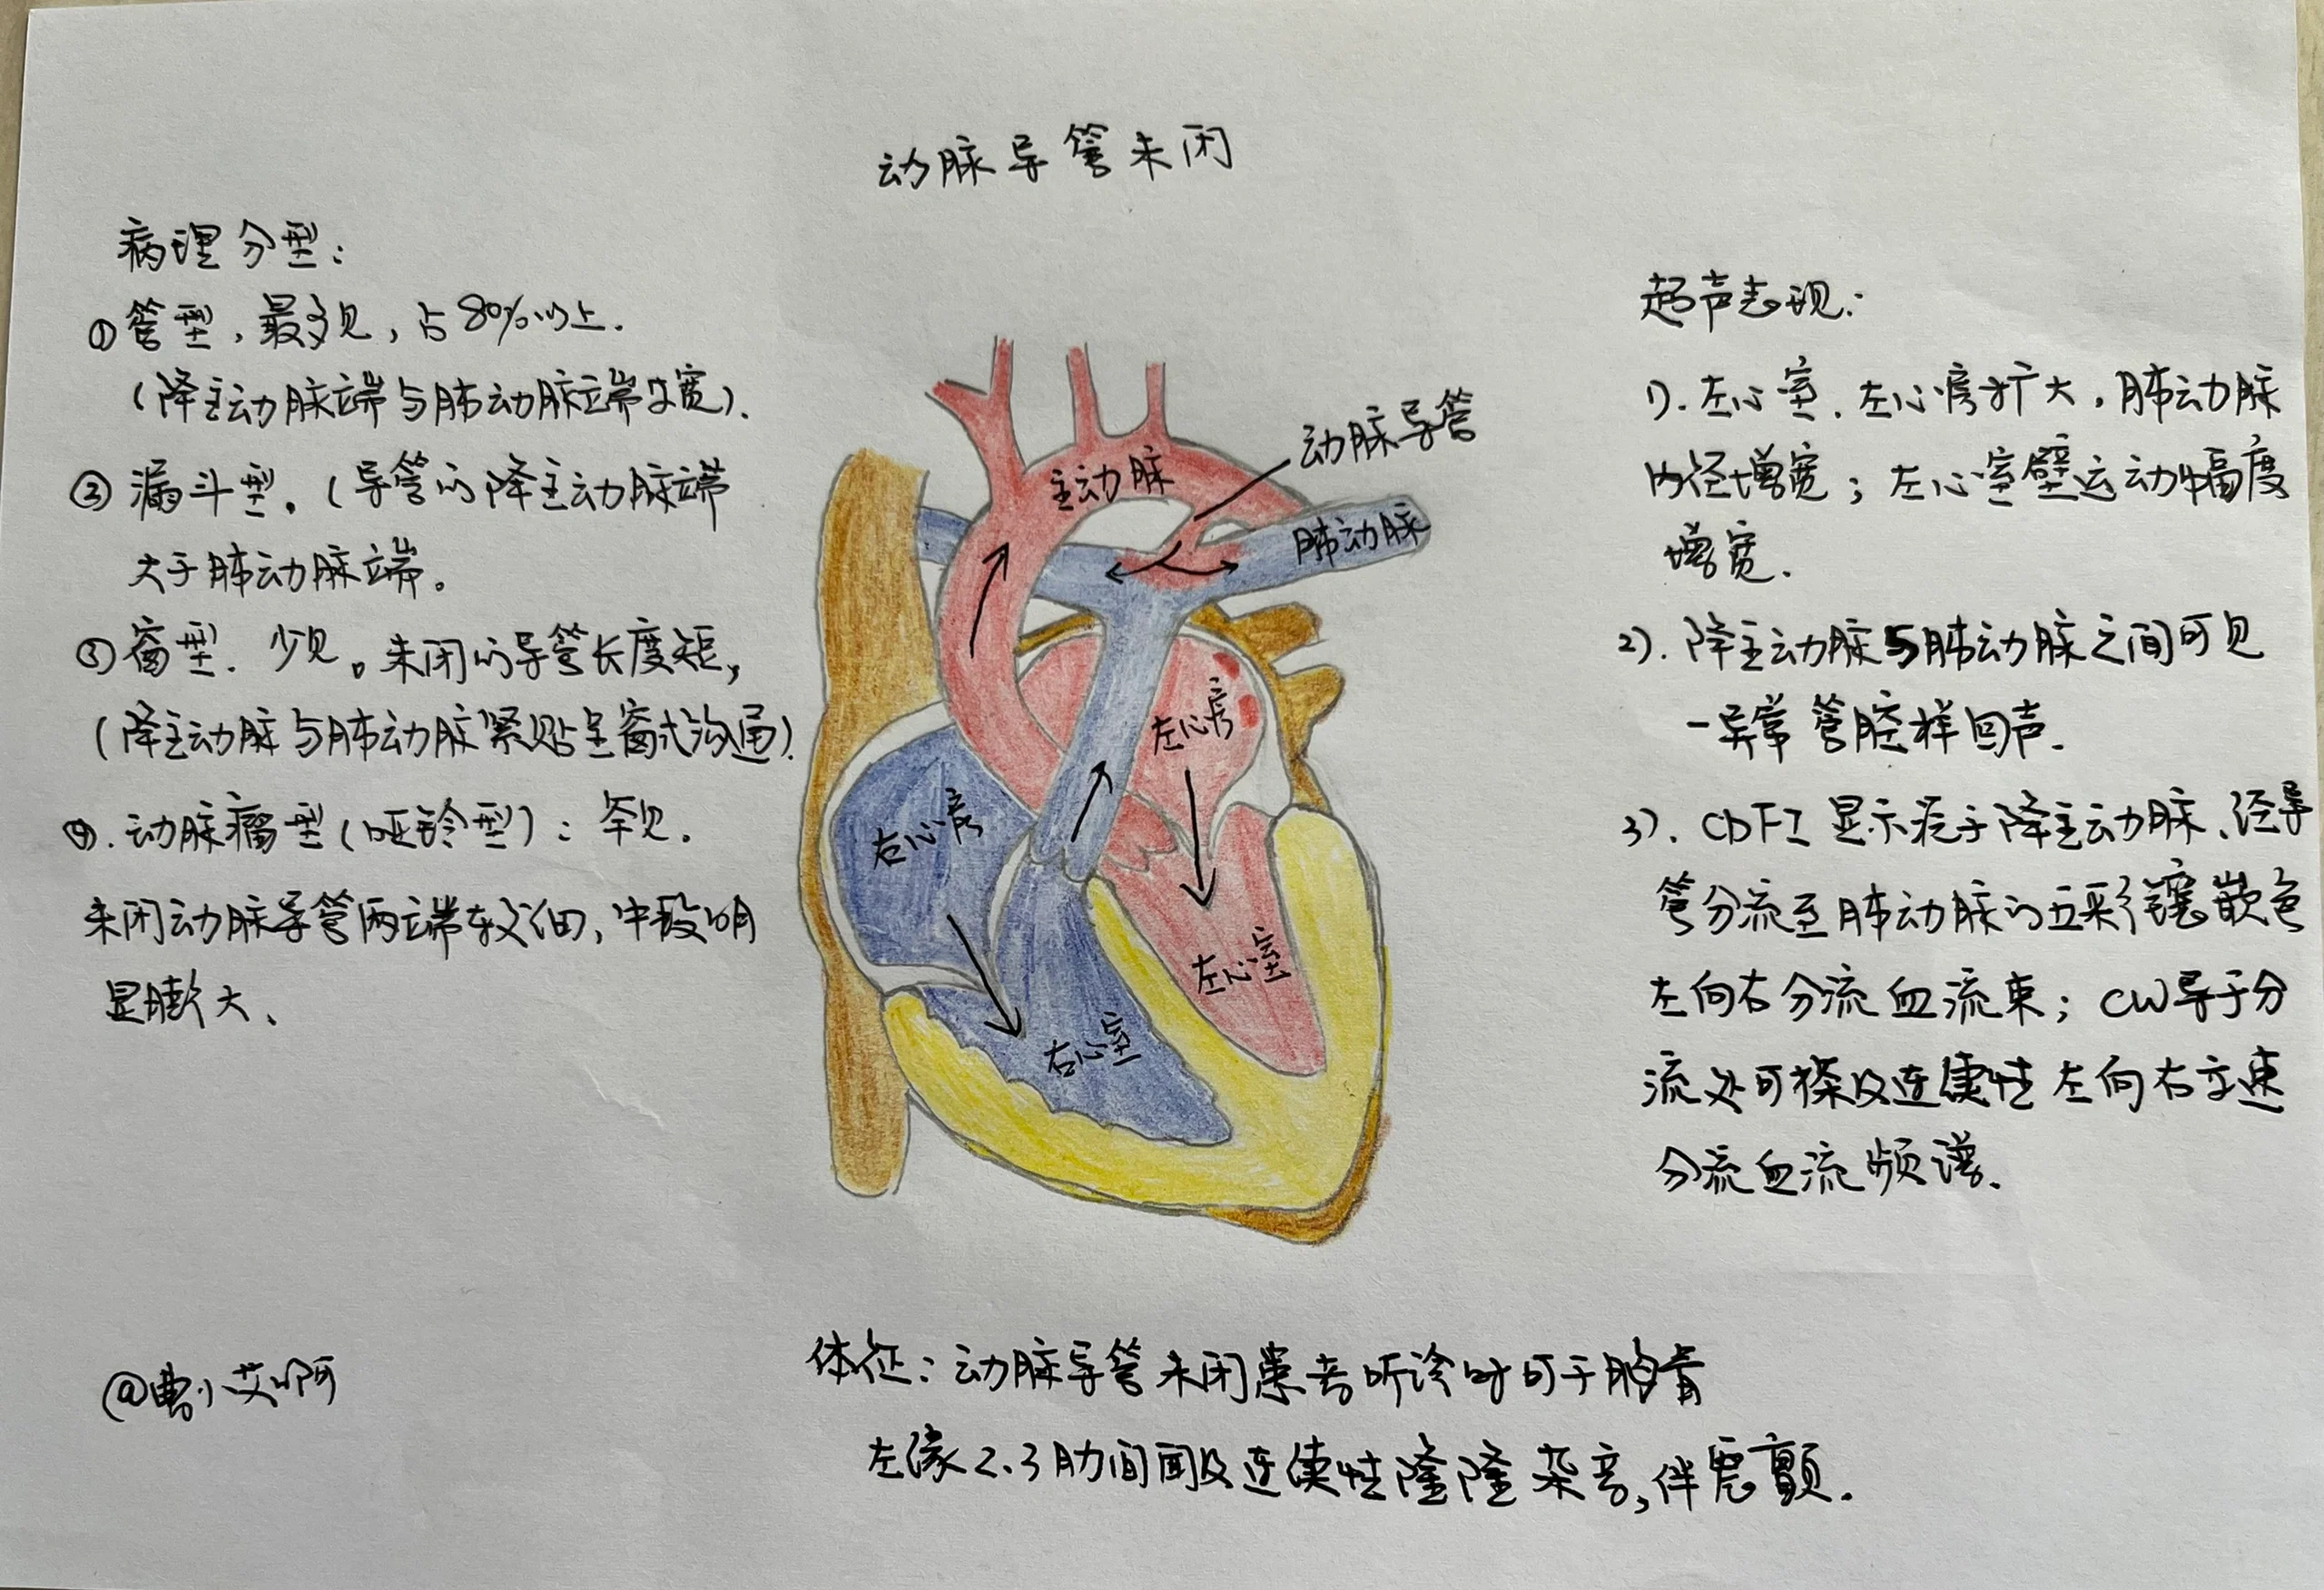 动脉导管未闭
病理分型：
①管型，最多见，占80%以上.
（降主动脉端与肺动脉端等宽）.
②漏斗型。（导管的降主动脉端
大于肺动脉端。
③窗型．少见。未闭的导管长度短，
（降主动脉与肺动脉紧贴呈窗式沟通）.
④.动脉瘤型（哑铃型）：罕见.
未闭动脉导管两端较细，中段明
显膨大、
动脉导管
主动脉
肺动脉
左心房
右心房
左心室
右心室
超声表现：
1）.左心室．左心房扩大，肺动脉
内径增宽；左心室壁运动幅度
增宽.
2）.降主动脉与肺动脉之间可见
一异常管腔样回声.
3）.CDFI显示起于降主动脉、经导
管分流至肺动脉的五彩镶嵌色
左向右分流血流束；CW导于分
流处可探及连续性左向右高速
分流血流频谱.
体征：动脉导管未闭患者听诊时可于胸骨
左缘2、3肋间闻及连续性隆隆杂音，伴震颤.
@曹小艾啊